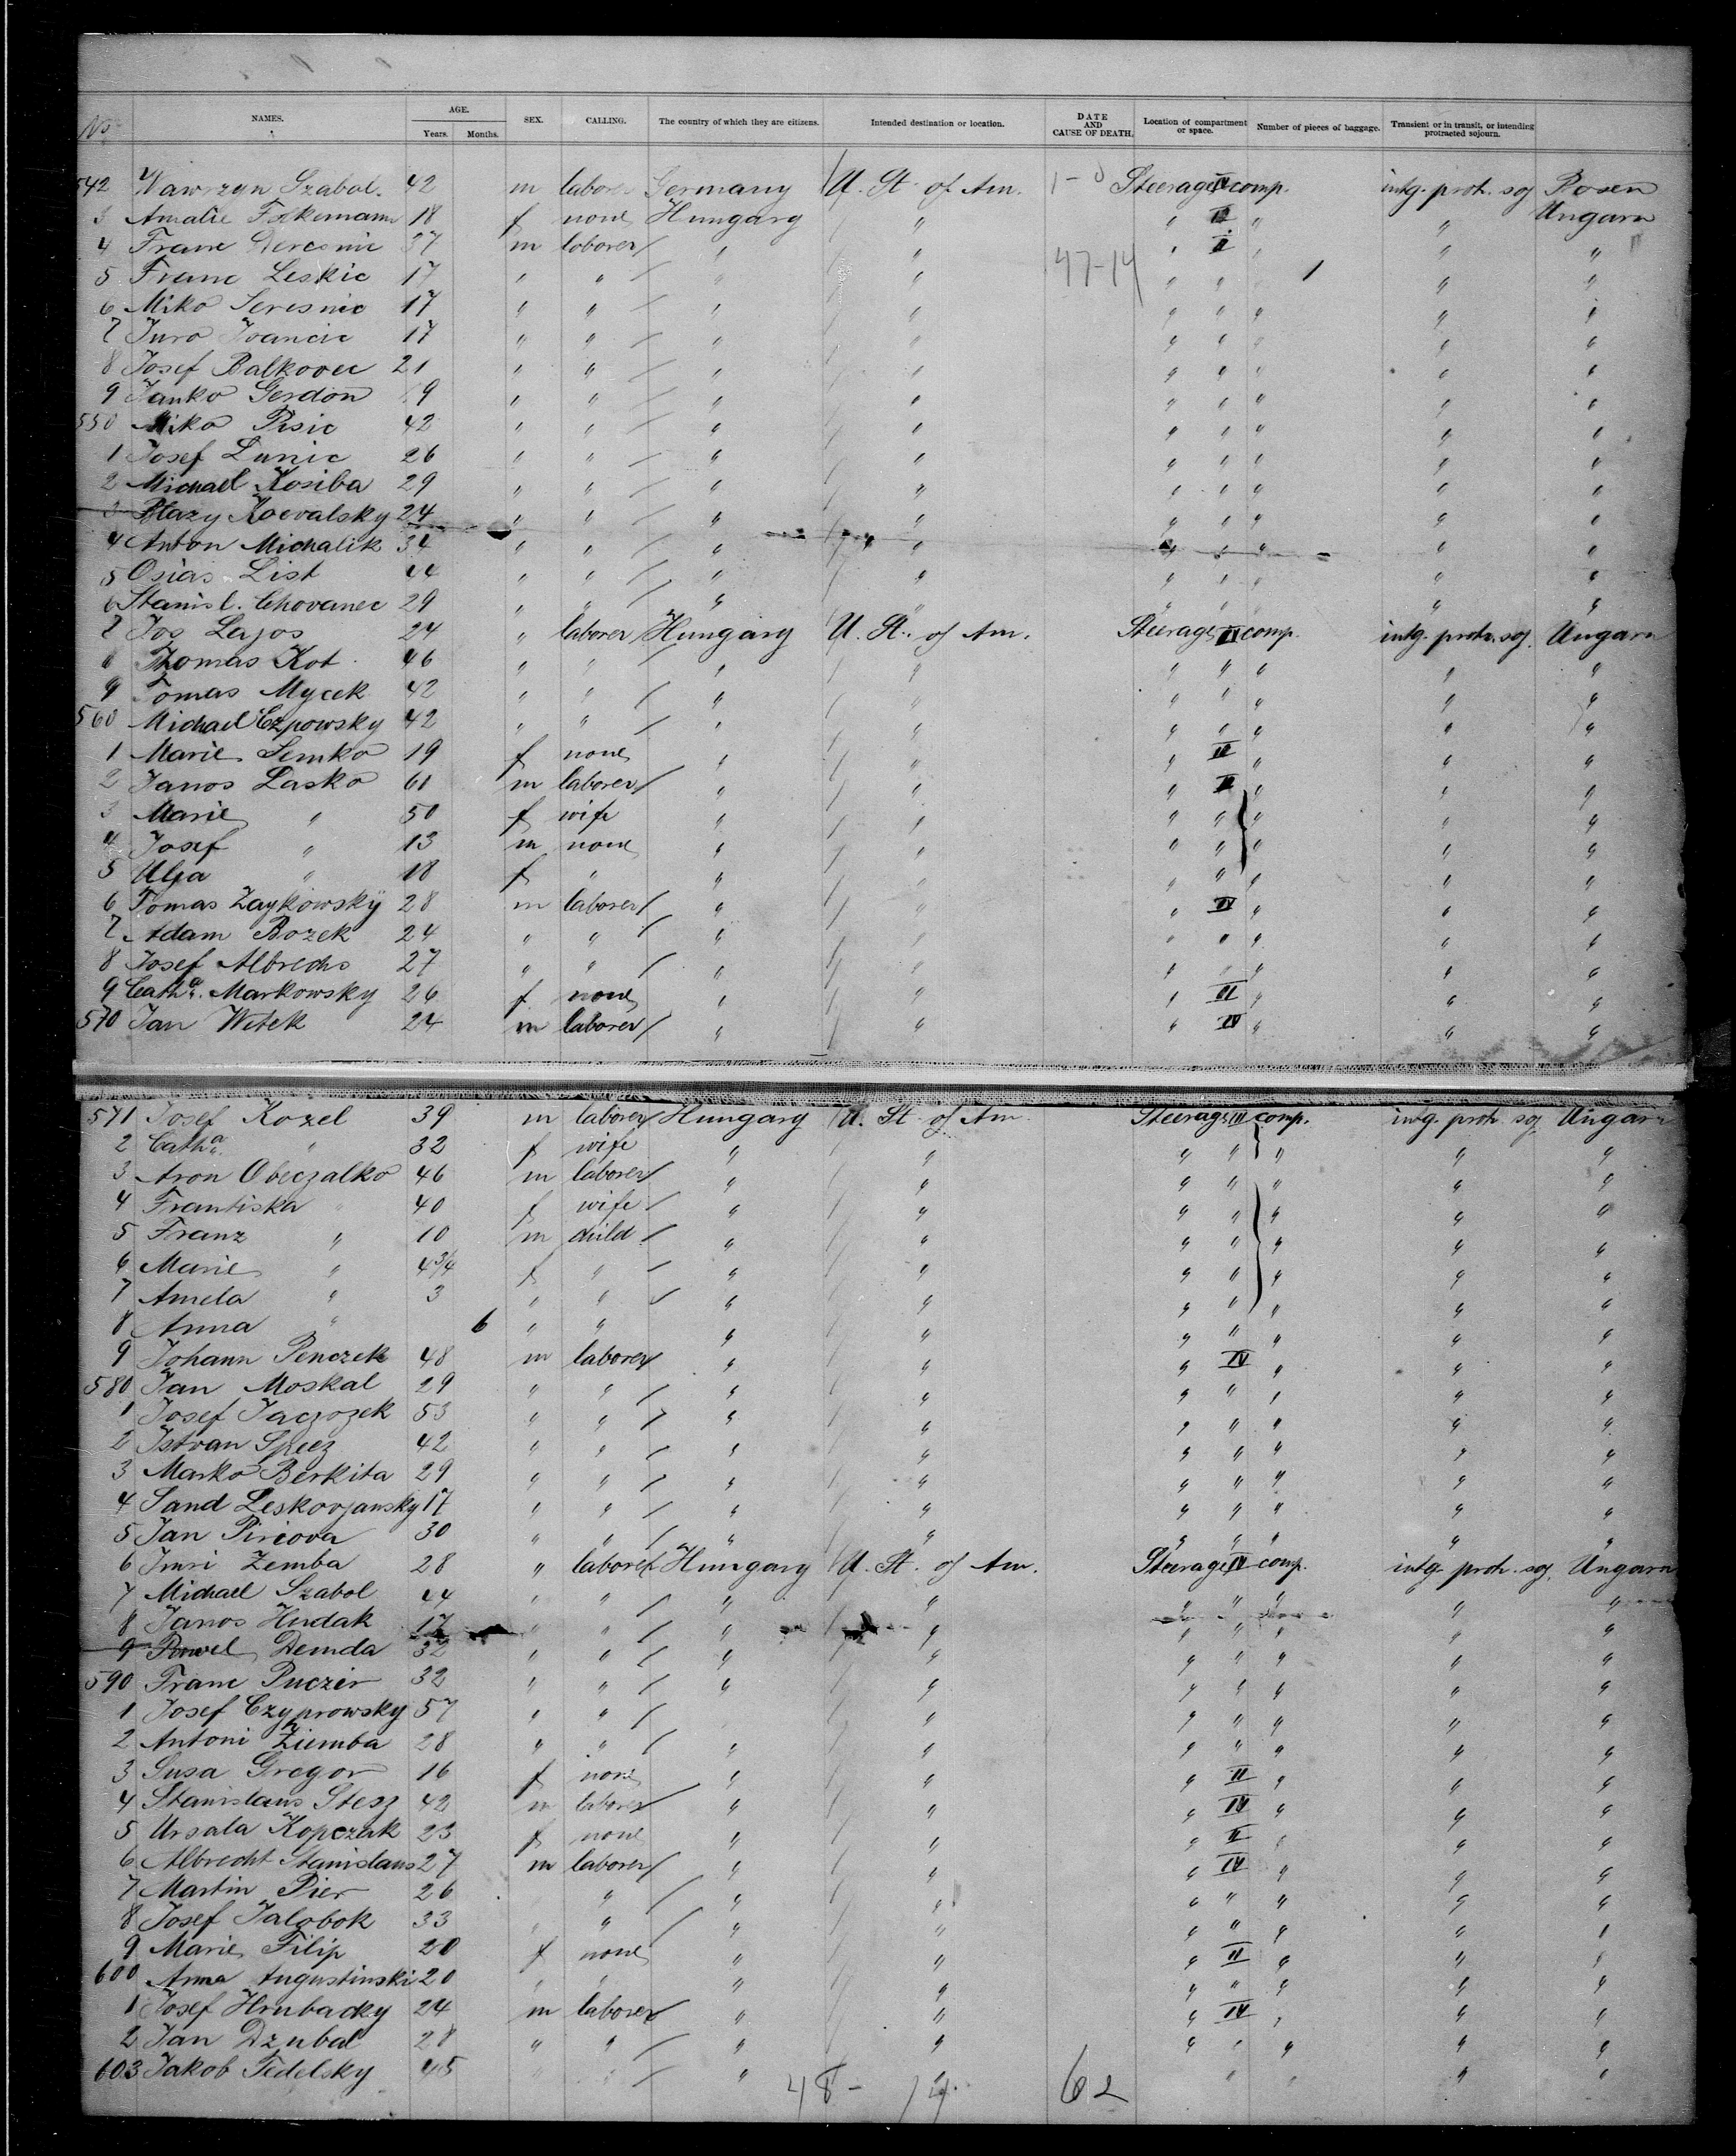 No NAMES. AGE. Years. Months. SEX. CALLING. The country of which they are citizens. Intended destination or location. DATE AND CAUSE OF DEATH. Location of compartment or space. Number of pieces of baggage. Transient or in transit, or intending protracted sojourn.
542 Wawrzyn Szabol. 42 m laborer Germany U. St. of Am. Steerage IV comp. intg. protr. soj Posen
3 Amalie 18 f none Hungary " " " " Ungarn
4 Franc 37 m laborer " " " II " " "
47-14
5 Franc Leskic 17 " " " " " " 1 " "
6 Miko 17 " " " " " " " " "
7 Juro Ivancic 17 " " " " " " " " "
8 Josef Balkovec 21 " " " " " " " " "
9 Janko Gerdon 19 " " " " " " " " "
550 Miko Pisic 42 " " " " " " " " "
1 Josef Lunic 26 " " " " " " " " "
2 Michael Kosiba 29 " " " " " " " " "
3 Blazy Kowalsky 24 " " " " " " " " "
4 Anton Michalik 34 " " " " " " " " "
5 Osias List 44 " " " " " " " " "
6 Stanisl. Chovanec 29 " " " " " " " " "
7 Jos Lajos 24 " laborer Hungary U. St. of Am. Steerage IV comp. intg. protr. soj. Ungarn
8 Thomas Kot 46 " " " " " " " " "
9 Tomas Mycek 42 " " " " " " " " "
560 Michael Czpowsky 42 " " " " " " " " "
1 Marie Semko 19 f none " " " III " " "
2 Janos Lasko 61 m laborer " " " " " "
3 Marie " 50 f wife " " " " " " "
4 Josef " 13 m none " " " " " " "
5 Ulja " 18 f " " " " " " " "
6 Tomas Zaykowsky 28 m laborer " " " IV " " "
7 Adam Bozek 24 " " " " " " " " "
8 Josef Albrechs 27 " " " " " " " " "
9 Catha. Markowsky 26 f none " " " III " " "
570 Jan Witek 24 m laborer " " " IV " " "
571 Josef Kozel 39 m laborer Hungary U. St. of Am. Steerage III comp. intg. protr. soj Ungarn
2 Catha. " 32 f wife " " " " " " "
3 Aron Obeczalko 46 m laborer " " " " " " "
4 Frantiska " 40 f wife " " " " " " "
5 Franz " 10 m child " " " " " " "
6 Marie " 4 3/4 f " " " " " " " "
7 Amela " 3 " " " " " " " " "
8 Anna " 6 " " " " " " " " "
9 Johann Penczek 48 m laborer " " " IV " " "
580 Jan Moskal 29 " " " " " " " " "
1 Josef Jaczozek 53 " " " " " " " " "
2 Istvan Specz 42 " " " " " " " " "
3 Marko Berkita 29 " " " " " " " " "
4 Sand Leskovjansky 17 " " " " " " " " "
5 Jan Pircova 30 " " " " " " " " "
6 Imri Zemba 28 " laborer Hungary U. St. of Am. Steerage IV comp. intg. protr. soj. Ungarn
7 Michael Szabol 44 " " " " " " " " "
8 Janos Hudak 17 " " " " " " " " "
9 Pawel Demda 32 " " " " " " " " "
590 Franc Puczir 32 " " " " " " " " "
1 Josef Czyprowsky 57 " " " " " " " "
2 Antoni Ziemba 28 " " " " " " " " "
3 Susa Gregor 16 f none " " " II " " "
4 Stanislaus Stesz 42 m laborer " " " IV " " "
5 Ursala Kopczak 23 f none " " " II " " "
6 Albrecht Stanislaus 27 m laborer " " " IV " " "
7 Martin Pier 26 " " " " " " " "
8 Josef Jalobok 33 " " " " " " " " "
9 Marie Filip 20 f none " " " II " " "
600 Anna Augustinski 20 " " " " " " " " "
1 Josef Hrubacky 24 m laborer " " " IV " " "
2 Jan Dzubal 28 " " " " " " " " "
603 Jakob Tedelsky 45 " " " " " " " "
48 - 14 62